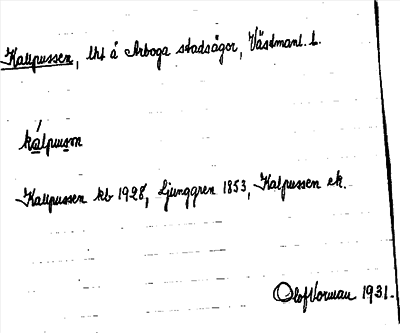 Kallpussen, lht å Arboga stadsägor, Västmanl. L.
kálpusᴏn
Kallpussen kb 1928, Ljunggren 1853, Kalpussen ek.
Olof Norman 1931.